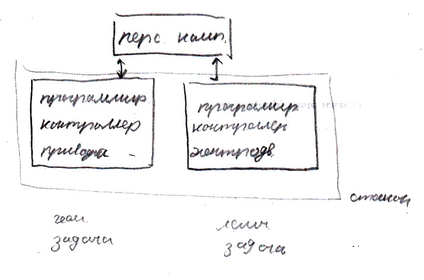 перс комп.
программир
контроллер
привода
программир
контроллер
электродв.
станок
геом
задача
логич
задача